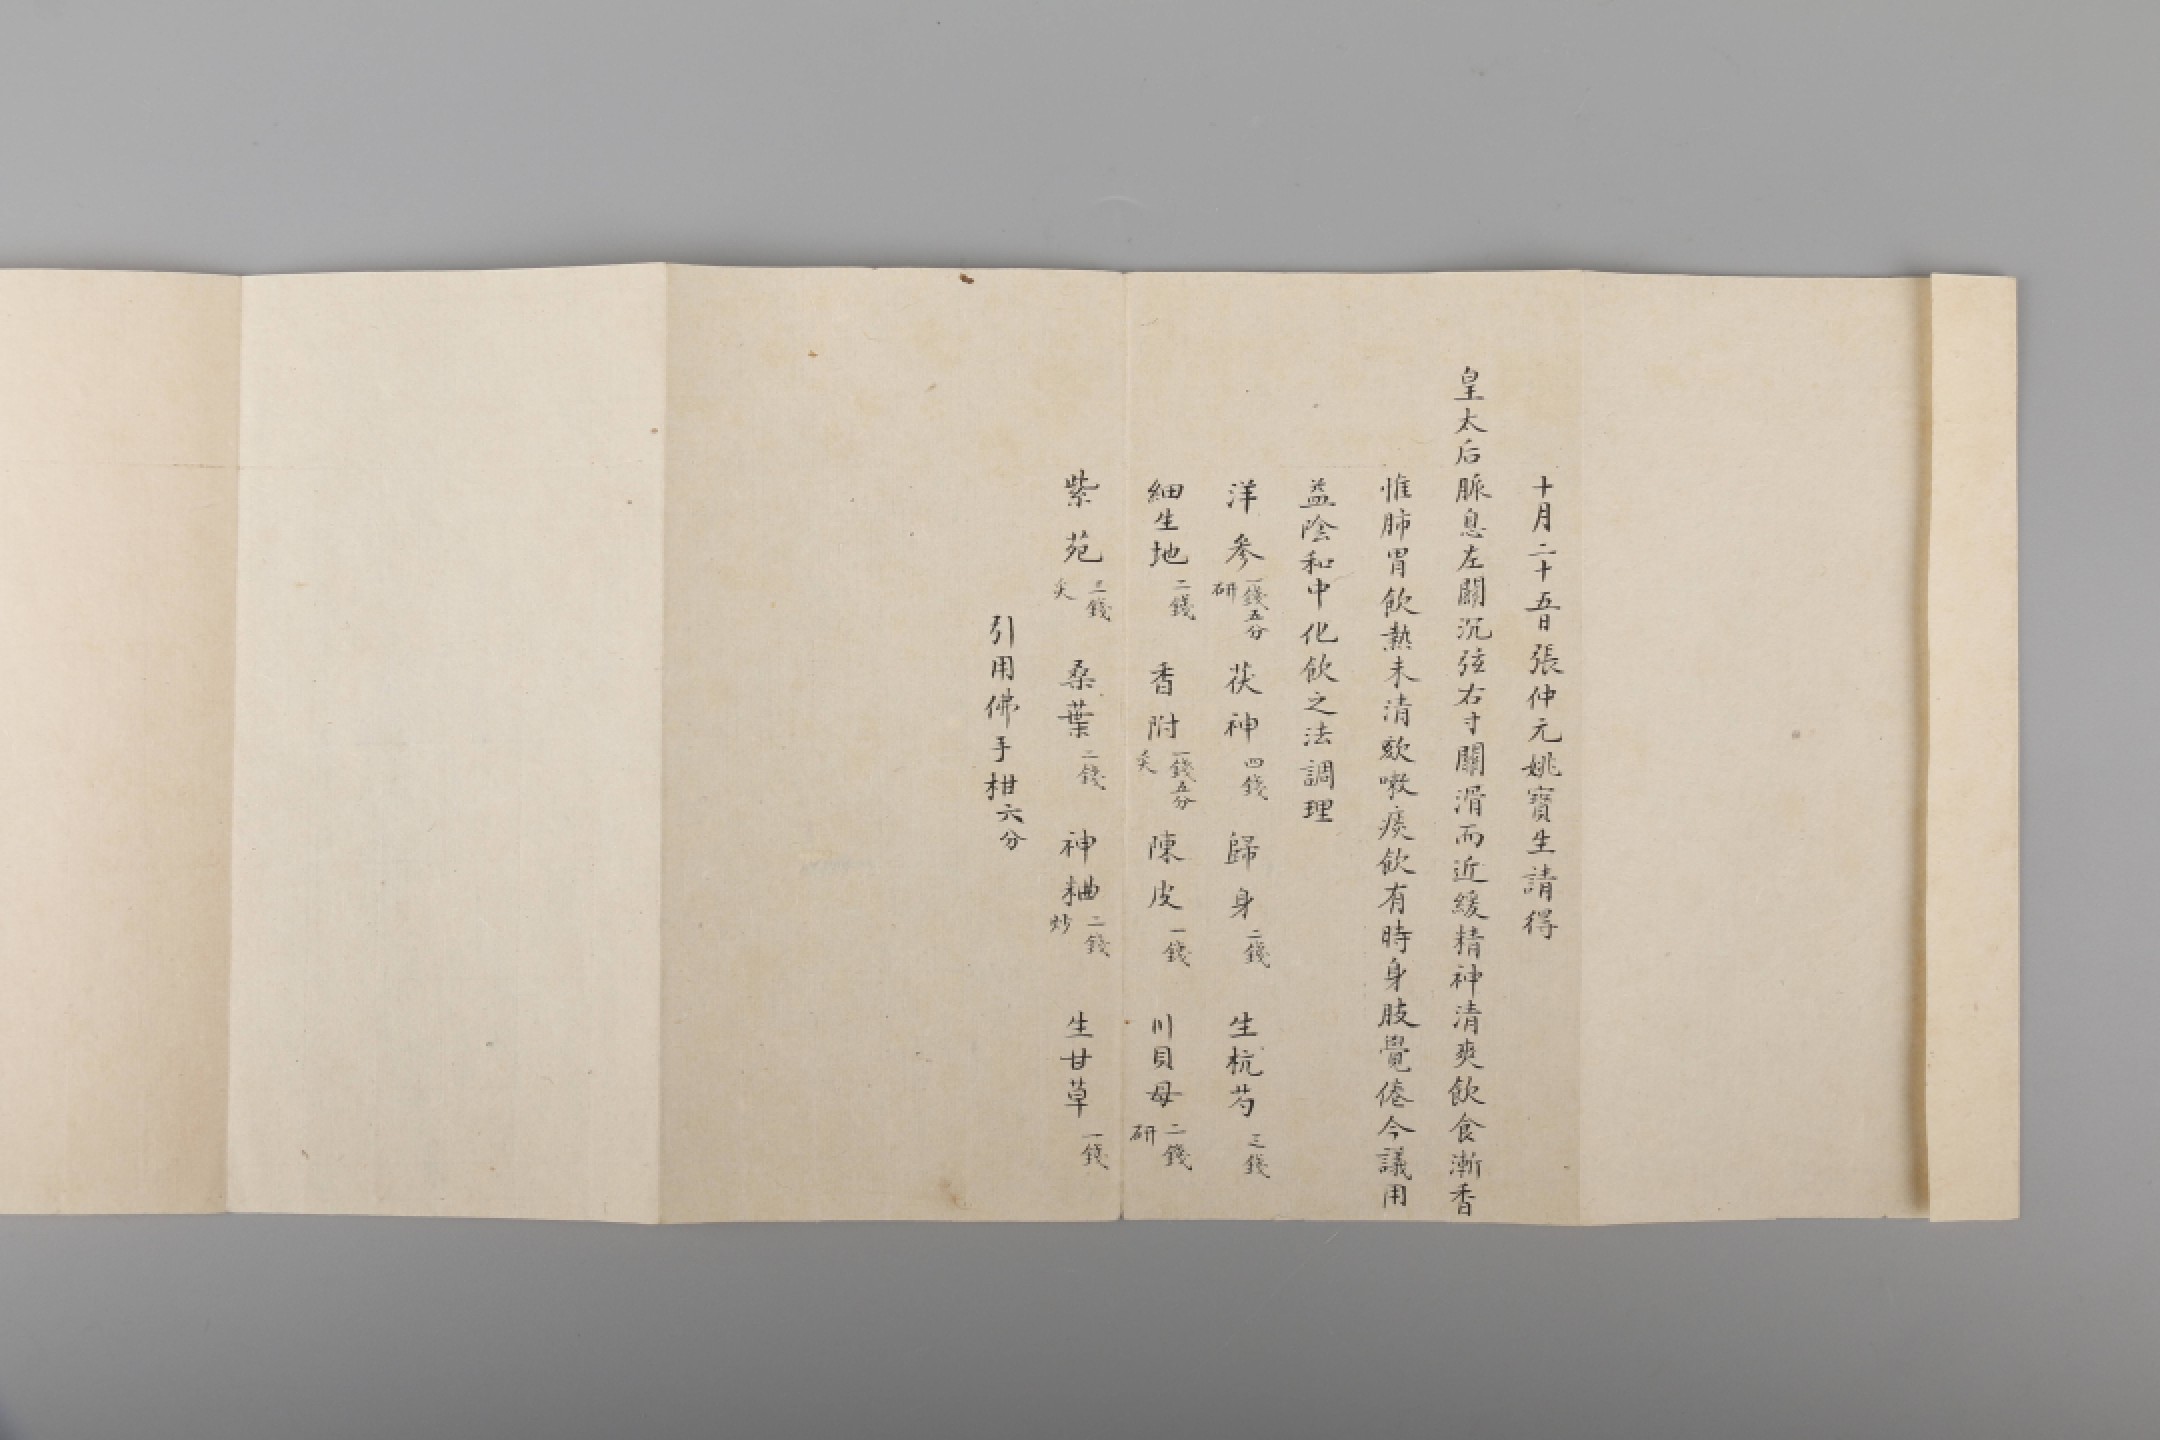 十月二十五日張仲元姚寶生請得
皇太后脈息左關沉弦右寸關滑而近緩精神清爽飲食漸香
惟肺胃飲熱未清欬嗽痰飲有時身肢覺倦今議用
益陰和中化飲之法調理
洋參一錢五分研 茯神四錢 歸身二錢 生杭芍三錢
細生地二錢 香附一錢五分炙 陳皮一錢 川貝母二錢研
紫苑三錢炙 桑葉二錢 神麯二錢炒 生甘草一錢
引用佛手柑六分